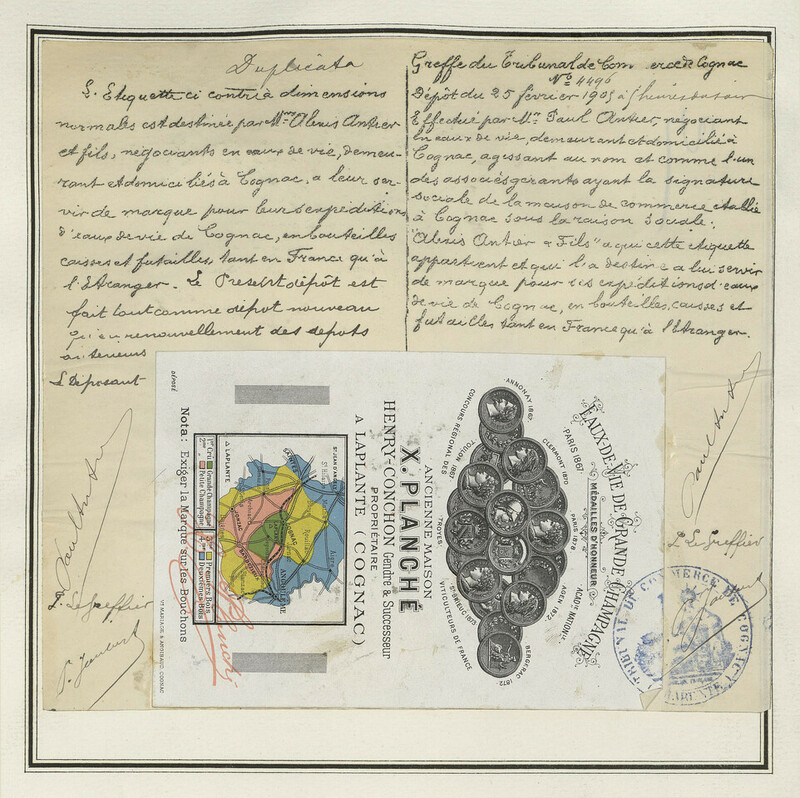 Duplicata
L'Etiquette ci contre à dimensions
normales est destinée par Mrs Alexis Antier
et fils, négociants en eaux de vie, demeu-
rant et domiciliés à Cognac, a leur ser-
vir de marque pour leurs expéditions
d'eaux de vie de Cognac, en bouteilles
caisses et futailles, tant en France qu'à
l'Etranger. Le Présent dépôt est
fait tout comme dépôt nouveau
qu'en renouvellement des dépots
antérieurs
Le Déposant
Paul Antier
Le Greffier
Greffe du Tribunal de Commerce de Cognac
No 4496
Dépôt du 25 février 1905 à 5 heures du soir
Effectué par Mr Paul Antier, négociant
en eaux de vie, demeurant et domicilié à
Cognac, agissant au nom et comme l'un
des associés gérants ayant la signature
sociale de la maison de commerce établie
à Cognac sous la raison sociale:
"Alexis Antier & Fils" a qui cette etiquette
appartient et qui l'a destine a lui servir
de marque pour ses expéditions d'eaux
de vie de Cognac, en bouteilles, caisses et
futailles tant en France qu'à l'Etranger.
Paul Antier
Le Greffier
TRIBUNAL DE COMMERCE DE COGNAC
CHARENTE
EAUX-DE-VIE DE GRANDE CHAMPAGNE
PARIS 1867
MÉDAILLES D'HONNEUR
PARIS 1878
ACADIE NATIONLE
ANNONAY 1867
CLERMONT 1870
CONCOURS RÉGIONAL DES
TOULON 1867
TROYES
AGEN 1872
ST BRIEUC 1873
VITICULTEURS DE FRANCE
BERGERAC 1872
ANCIENNE MAISON
X. PLANCHÉ
HENRY-CONCHON Gendre & Successeur
PROPRIÉTAIRE
A LAPLANTE (COGNAC)
ST JEAN D'ANGELY
COGNAC
ANGOULÊME
△ LAPLANTE
1er Cru Grande Champagne
2me Petite Champagne
3 Premiers Bois
4 Deuxièmes Bois
Nota: Exiger la Marque sur les Bouchons
DÉPOSÉ
VE MARIAGE & ARCHIBALD, COGNAC